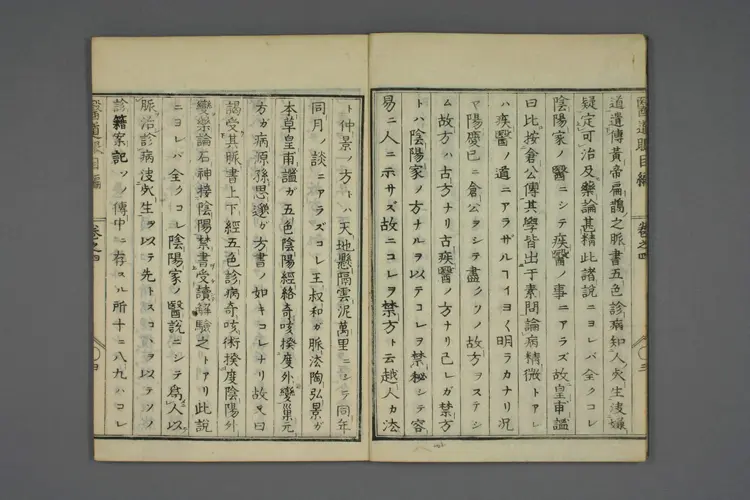 道遺傳黃帝扁鵲之脈書五色診病知人死生决嫌
疑定可治及藥論甚精此諸說ニヨレバ全クコレ
陰陽家ノ醫ニシテ疾醫ノ事ニアラズ故皇甫謐
曰比按倉公傳其學皆出于素問論病精微トアレ
ハ疾醫ノ道ニアラザルヿイヨ〱明ラカナリ况
ヤ陽慶已ニ倉公ヲシテ盡クソノ故方ヲステシ
ム故方ハ古方ナリ古疾醫ノ方ナリ己レガ禁方
トハ陰陽家ノ方ナルヲ以テコレヲ禁秘シテ容
易ニ人ニ示サズ故ニコレヲ禁方ト云越人カ法
醫道眼目編 卷之四 三
ト仲景ノ方トハ天地懸隔雲泥萬里ニシテ同年
同月ノ談ニアラズコレ王叔和ガ脈法陶弘景ガ
本草皇甫謐ガ五色陰陽經絡奇咳揆度外變巢元
方ガ病原孫思邈ガ方書ノ如キコレナリ故又曰
謁受其脈書上下經五色診病奇咳術揆度陰陽外
變藥論石神接陰陽禁書受讀解驗之トアリ此說
ニヨレバ全クコレ陰陽家ノ醫說ニシテ爲人以
脈治診病决死生ヲ以テ先トスコハヲ以テソノ
診籍案記ソノ傳中ニ存スル所十ニ八九ハコレ
醫道眼目編 卷之四 四